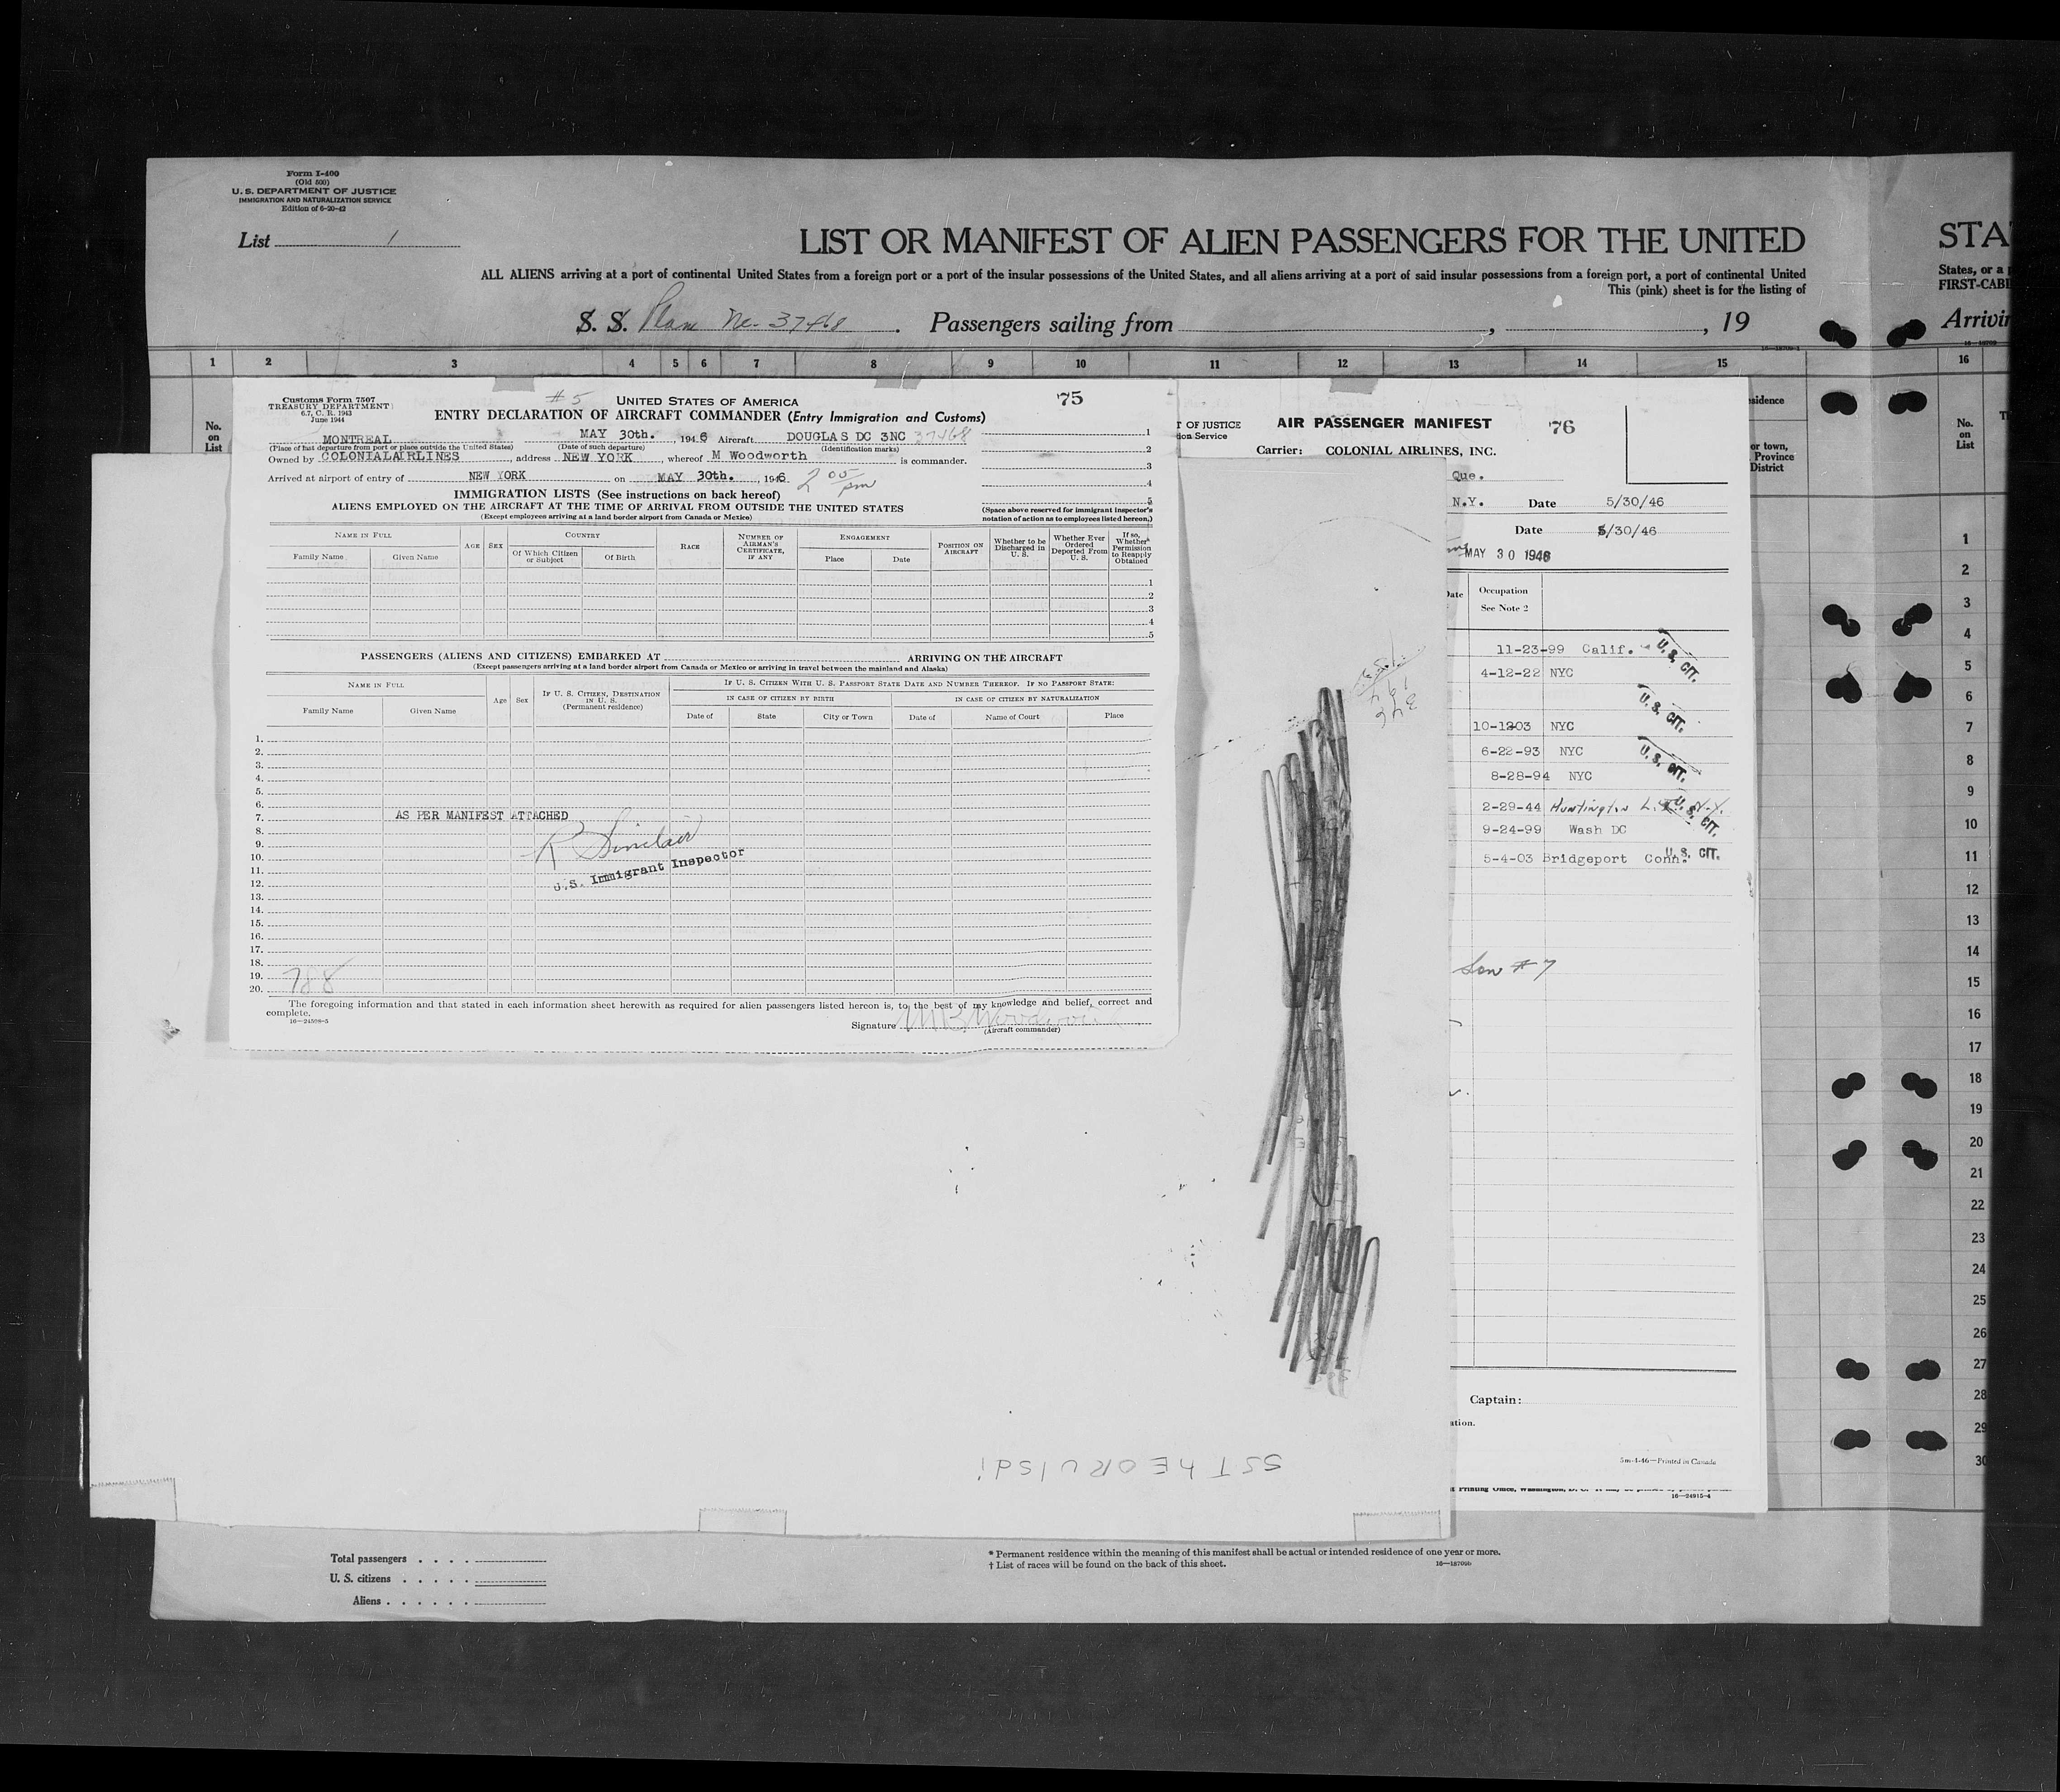 Form I-400
(Old 500)
U. S. DEPARTMENT OF JUSTICE
IMMIGRATION AND NATURALIZATION SERVICE
Edition of 6-20-42
List 1
LIST OR MANIFEST OF ALIEN PASSENGERS FOR THE UNITED
STA
ALL ALIENS arriving at a port of continental United States from a foreign port or a port of the insular possessions of the United States, and all aliens arriving at a port of said insular possessions from a foreign port, a port of continental United
States, or a p
This (pink) sheet is for the listing of
FIRST-CABI
S. S. Plane No. 37468 . Passengers sailing from , , 19
Arrivin
1 2 3 4 5 6 7 8 9 10 11 12 13 14 15 16
No.
on
List
Customs Form 7507
TREASURY DEPARTMENT
6.7, C. R. 1943
June 1944
#5
UNITED STATES OF AMERICA
75
ENTRY DECLARATION OF AIRCRAFT COMMANDER (Entry Immigration and Customs)
MONTREAL MAY 30th. 1946 Aircraft DOUGLAS DC 3NC 37468
(Place of last departure from port or place outside the United States) (Date of such departure) (Identification marks)
Owned by COLONIALAIRLINES, address NEW YORK, whereof M Woodworth is commander.
Arrived at airport of entry of NEW YORK on MAY 30th., 1946 2 05 pm
1
2
3
4
5
IMMIGRATION LISTS (See instructions on back hereof)
ALIENS EMPLOYED ON THE AIRCRAFT AT THE TIME OF ARRIVAL FROM OUTSIDE THE UNITED STATES
(Except employees arriving at a land border airport from Canada or Mexico)
(Space above reserved for immigrant inspector's
notation of action as to employees listed hereon.)
NAME IN FULL
Family Name Given Name
AGE SEX
COUNTRY
Of Which Citizen or Subject
Of Birth
RACE
NUMBER OF AIRMAN'S CERTIFICATE, IF ANY
ENGAGEMENT
Place Date
POSITION ON AIRCRAFT
Whether to be Discharged in U. S.
Whether Ever Ordered Deported From U. S.
If so, Whether Permission to Reapply Obtained
1
2
3
4
5
PASSENGERS (ALIENS AND CITIZENS) EMBARKED AT ARRIVING ON THE AIRCRAFT
(Except passengers arriving at a land border airport from Canada or Mexico or arriving in travel between the mainland and Alaska)
NAME IN FULL
Family Name Given Name
Age Sex
IF U. S. CITIZEN, DESTINATION IN U. S.
(Permanent residence)
IF U. S. CITIZEN WITH U. S. PASSPORT STATE DATE AND NUMBER THEREOF. IF NO PASSPORT STATE:
IN CASE OF CITIZEN BY BIRTH IN CASE OF CITIZEN BY NATURALIZATION
Date of State City or Town Date of Name of Court Place
1.
2.
3.
4.
5.
6.
7. AS PER MANIFEST ATTACHED
8.
9. R Sinclair
10.
11. U.S. Immigrant Inspector
12.
13.
14.
15.
16.
17.
18.
19. 788
20.
The foregoing information and that stated in each information sheet herewith as required for alien passengers listed hereon is, to the best of my knowledge and belief, correct and
complete.
16—24598-5
Signature M B Woodworth
(Aircraft commander)
T OF JUSTICE
ion Service
AIR PASSENGER MANIFEST
76
Carrier: COLONIAL AIRLINES, INC.
Que.
N.Y. Date 5/30/46
Date 5/30/46
MAY 30 1946
Date
Occupation
See Note 2
11-23-99 Calif. U. S. CIT.
4-12-22 NYC
U. S. CIT.
10-1203 NYC
6-22-93 NYC U. S. CIT.
8-28-94 NYC
2-29-44 Huntington L.I. N.Y.
U. S. CIT.
9-24-99 Wash DC
5-4-03 Bridgeport Conn. U. S. CIT.
Son #7
Captain:
ation.
5m-4-46—Printed in Canada
16—24915-4
sidence
or town,
Province
District
No.
on
List
1
2
3
4
5
6
7
8
9
10
11
12
13
14
15
16
17
18
19
20
21
22
23
24
25
26
27
28
29
30
Total passengers . . . .
U. S. citizens . . . . .
Aliens . . . . . .
* Permanent residence within the meaning of this manifest shall be actual or intended residence of one year or more.
† List of races will be found on the back of this sheet.
16—18709b